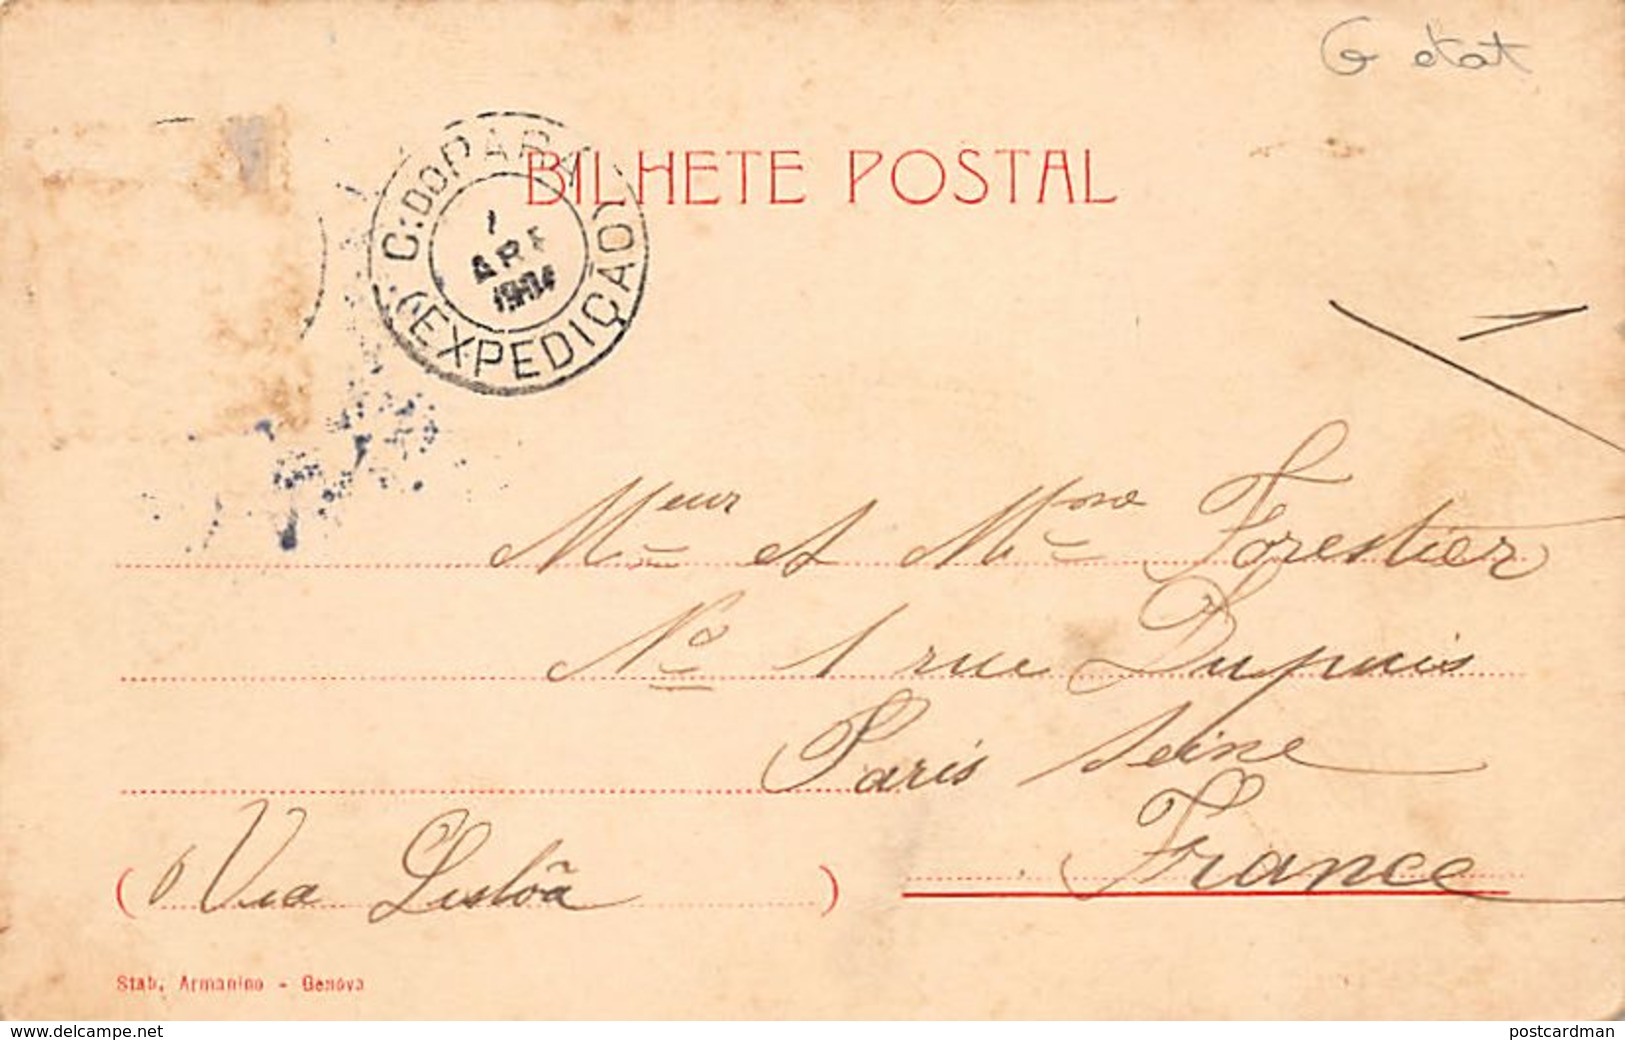 G état
BILHETE POSTAL
C: DO PARÁ
1
ABR
1904
(EXPEDIÇÃO)
Meur et Mme Forestier
No 1 rue Dupuis
Paris Seine
France
(Via Lisbôa)
Stab. Armanino - Genova
www.delcampe.net
postcardman